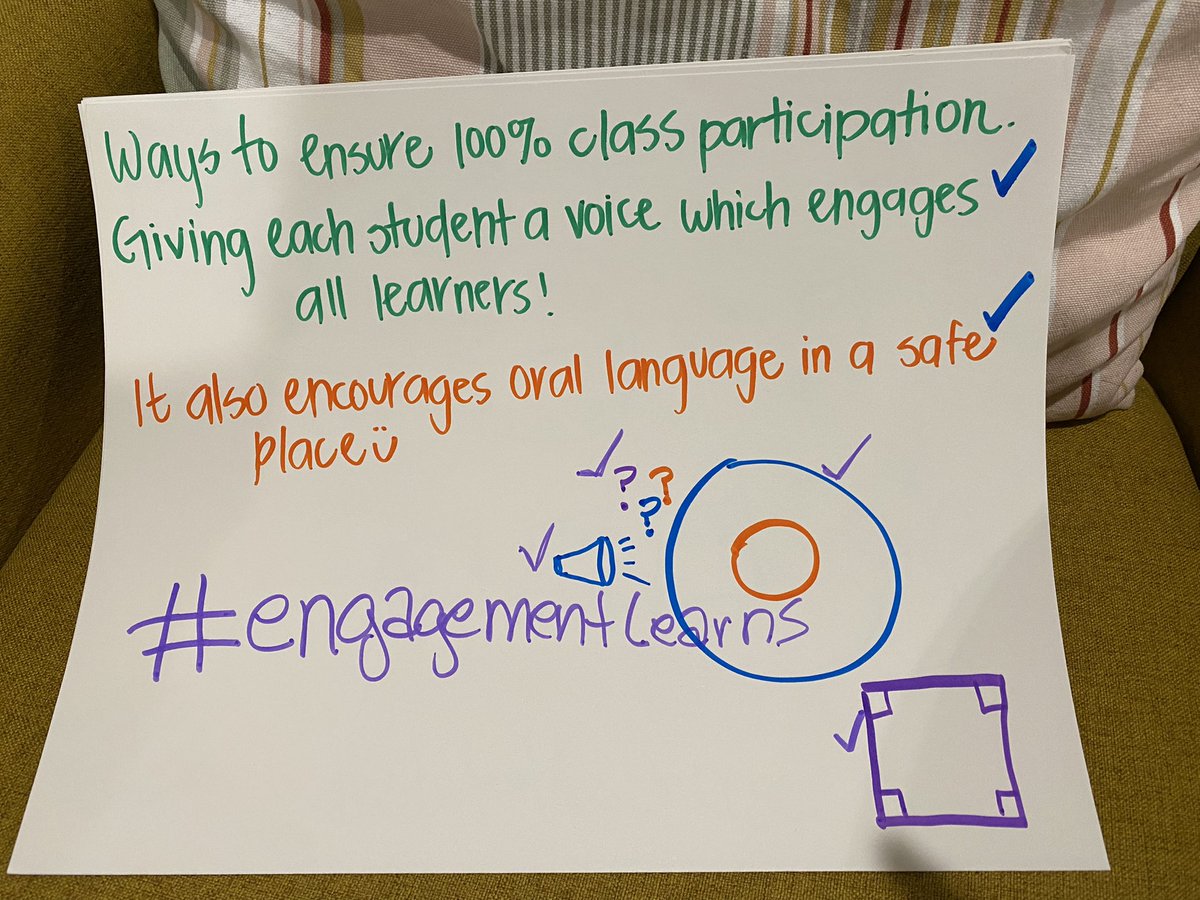 Ways to ensure 100% class participation.
Giving each student a voice which engages
all learners!
It also encourages oral language in a safe
place
? ?
?
#engagementlearns